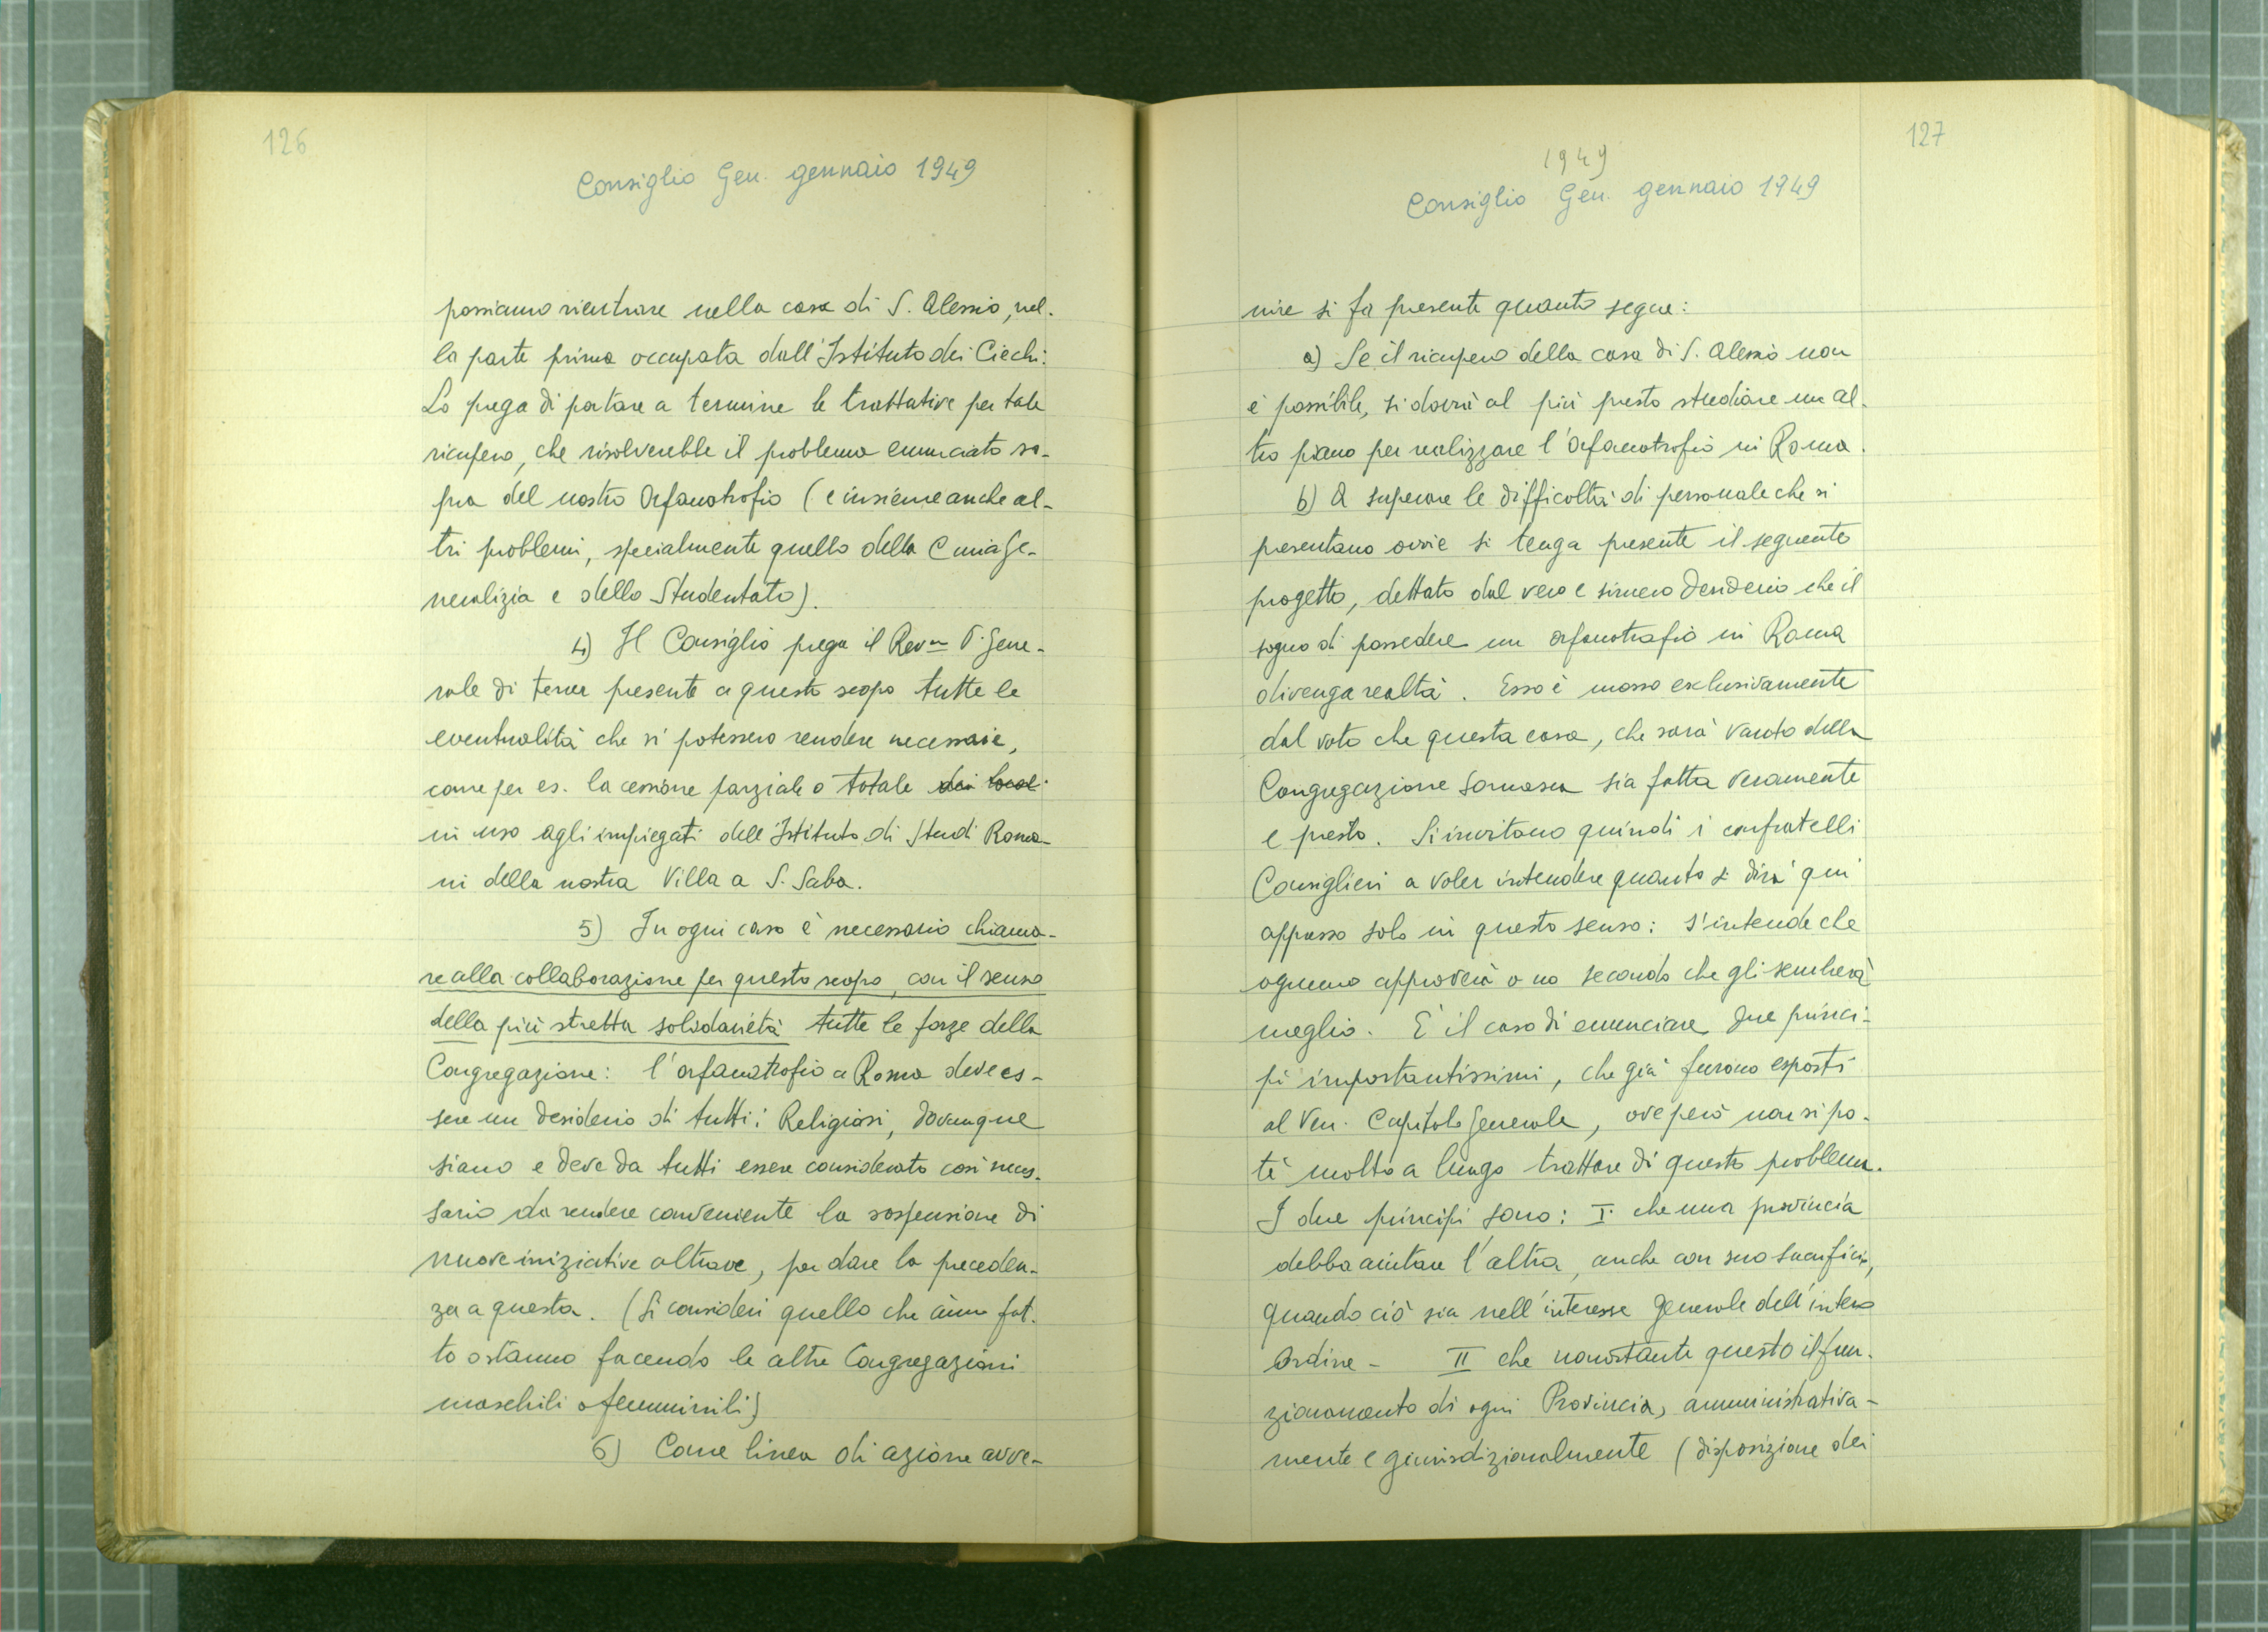 126
Consiglio Gen. gennaio 1949
possiamo rientrare nella casa di S. Alessio, nel-
la parte prima occupata dall'Istituto dei Ciechi:
Lo prega di portare a termine le trattative per tale
ricupero, che risolverebbe il problema enunciato so-
pra del nostro Orfanotrofio (e insieme anche al-
tri problemi, specialmente quello della Curia Ge-
neralizia e dello Studentato).
4) Il Consiglio prega il Rev.mo P. Gene-
rale di tener presente a questo scopo tutte le
eventualità che si potessero rendere necessarie,
come per es. la cessione parziale o totale dei locali
in uso agli impiegati dell'Istituto di Studi Roma-
ni della nostra Villa a S. Saba.
5) In ogni caso è necessario chiama-
re alla collaborazione per questo scopo, con il senso
della più stretta solidarietà tutte le forze della
Congregazione: l'orfanotrofio a Roma deve es-
sere un desiderio di tutti i Religiosi, dovunque
siano e deve da tutti essere considerato così neces-
sario da rendere conveniente la sospensione di
nuove iniziative altrove, per dare la preceden-
za a questa. (Si consideri quello che ànno fat-
to o stanno facendo le altre Congregazioni
maschili o femminili)
6) Come linea di azione avve-
127
1949
Consiglio Gen. gennaio 1949
nire si fa presente quanto segue:
a) Se il ricupero della casa di S. Alessio non
è possibile, si dovrà al più presto studiare un al-
tro piano per realizzare l'Orfanotrofio in Roma.
b) A superare le difficoltà di personale che si
presentano ovvie si tenga presente il seguente
progetto, dettato dal vero e sincero desiderio che il
sogno di possedere un orfanotrofio in Roma
divenga realtà. Esso è mosso esclusivamente
dal voto che questa casa, che sarà vanto della
Congregazione Somasca sia fatta veramente
e presto. Si invitano quindi i confratelli
Consiglieri a voler intendere quanto si dirà qui
appresso solo in questo senso: s'intende che
ognuno approverà o no secondo che gli sembrerà
meglio. È il caso di enunciare due princi-
pi importantissimi, che già furono esposti
al Ven. Capitolo Generale, ove però non si po-
tè molto a lungo trattare di questo problema.
I due principi sono: I. che una provincia
debba aiutare l'altra, anche con suo sacrificio,
quando ciò sia nell'interesse generale dell'intero
Ordine - II che nonostante questo il fun-
zionamento di ogni Provincia, amministrativa-
mente e giurisdizionalmente (disposizione dei